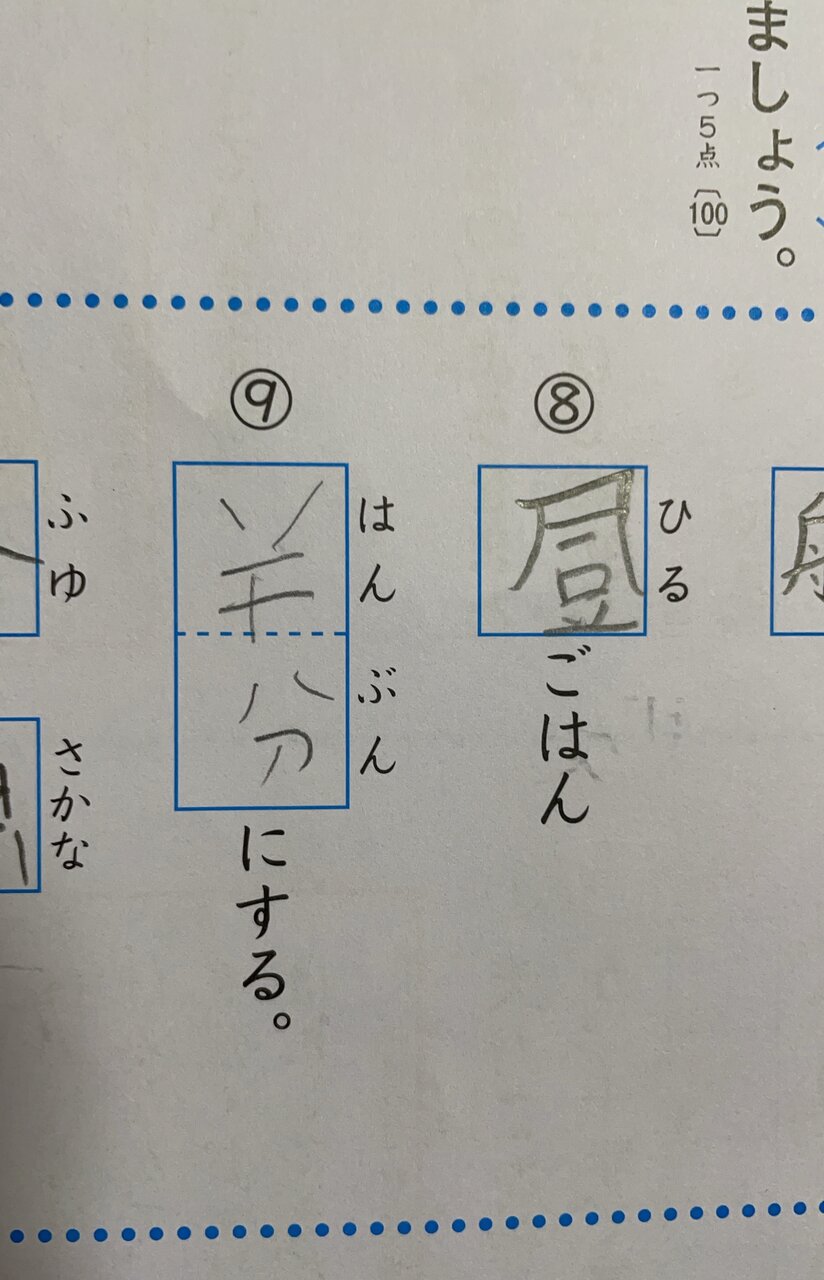 ましょう。
一つ5点〔100〕
⑧
ひる
ごはん
⑨
はんぶん
半分にする。
ふゆ
さかな